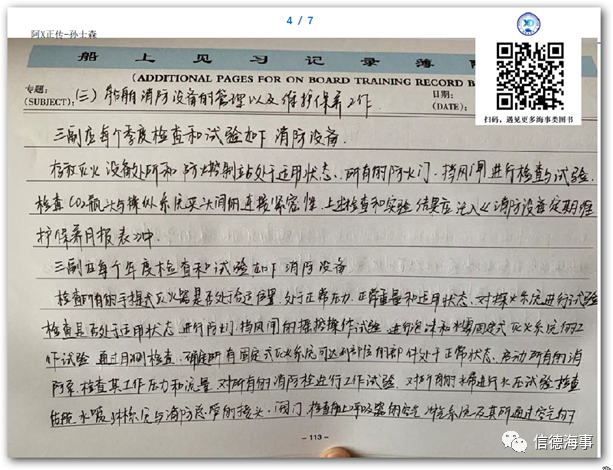 4 / 7
阿X正传-孙士森
船 上 见 习 记 录 簿 附
(ADDITIONAL PAGES FOR ON BOARD TRAINING RECORD B
专题:
(SUBJECT): (三) 船舶消防设备的管理以及维护保养工作.
日期:
(DATE):
扫码，遇见更多海事类图书
三副应每个季度检查和试验如下消防设备.
存放灭火设备处所和防火控制站处于适用状态、所有的防火门、挡风闸进行检查与试验.
检查CO2瓶头与操纵系统夹头间的连接紧密性.上述检查和实验结果应记入《消防设备定期维
护保养月报表》中.
三副应每个年度检查和试验如下消防设备
检查所有的手提式灭火器是否处于位置.处于正常压力.正常重量和适用状态.对探火系统进行试验
检查是否处于适用状态 进行防火门.挡风闸的操作试验 进行泡沫和水雾固定式灭火系统的工
作试验 通过目测检查.确定所有固定式灭火系统可达到部位的部件处于正常状态.启动所有的消
防泵.检查其工作压力和流量 对所有的消防栓进行工作试验.对所有的水带进行水压试验 检查
水喷 系统与消防总管的接头.阀门 检查 呼吸器的 系统及其
- 113 -
信德海事